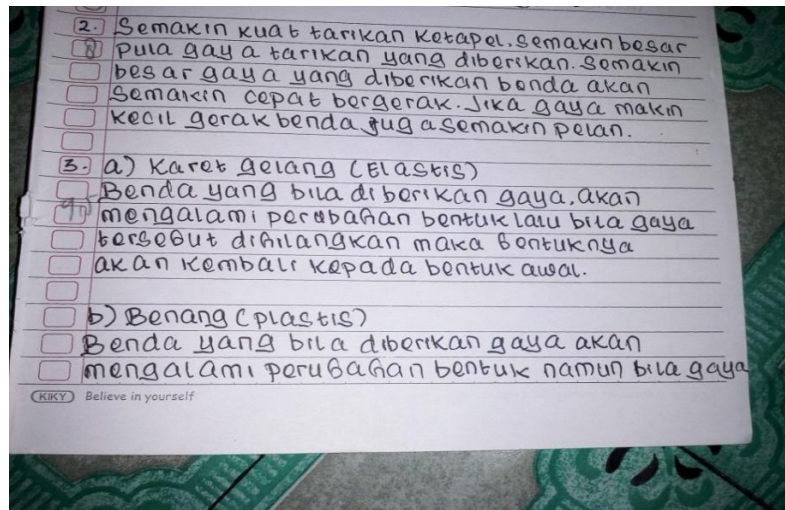 2. Semakin kuat tarikan ketapel. Semakin besar
8 pula gaya tarikan yang diberikan. Semakin
besar gaya yang diberikan benda akan
Semakin cepat bergerak. Jika gaya makin
kecil gerak benda juga semakin pelan.
3. a) Karet gelang (Elastis)
Benda yang bila diberikan gaya, akan
mengalami perubahan bentuk lalu bila gaya
tersebut dihilangkan maka bentuknya
akan kembali kepada bentuk awal.
b) Benang (plastis)
Benda yang bila diberikan gaya akan
mengalami perubahan bentuk namun bila gaya
KIKY Believe in yourself